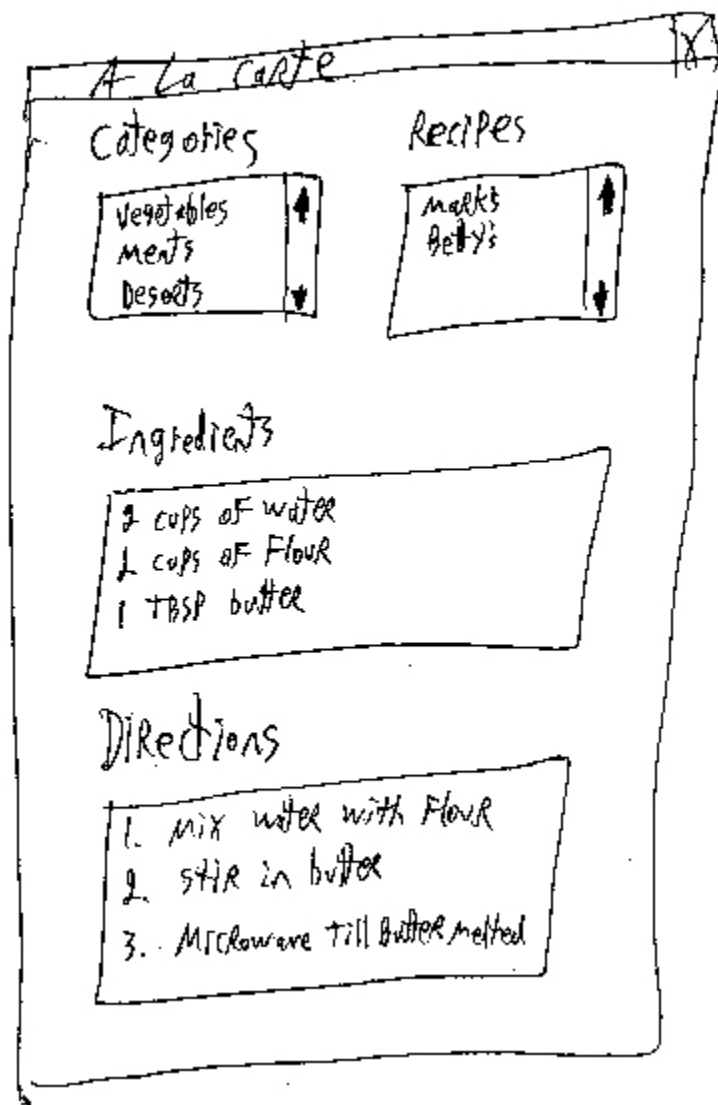 A La Carte
X
Categories
Recipes
Vegetables
Meats
Deserts
Mark's
Betty's
Ingredients
2 cups of water
2 cups of Flour
1 TBSP butter
Directions
1. Mix water with Flour
2. stir in butter
3. Microwave till Butter melted